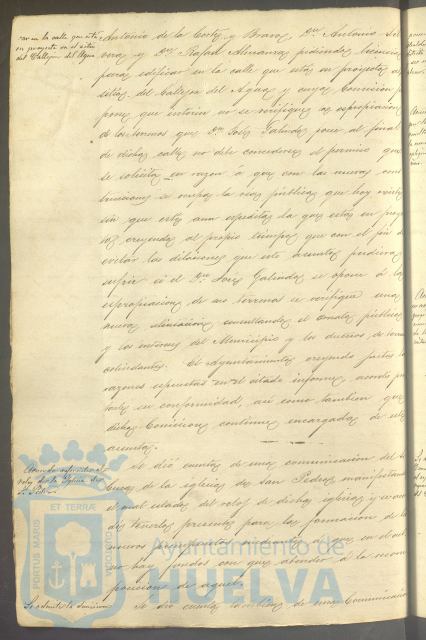 car en la calle que está
en proyecto en el sitio
del Callejon del Agua
Antonio de la Corte y Bravo, Dn Antonio
y Dn Rafael Almanza pidiendo licencia
para edificar en la calle que está en proyecto
sitio del Callejon del Agua y cuya Comision
pone que interin no se verifique la expropiacion
de los terrenos que Dn José Galindo posee al final
de dicha calle no debe concederse el permiso que
se solicita en razon á que con las nuevas cons
trucciones se ocupa la via pública que hoy existe
sin que esté aun espedita la que está en proyec
to, creyendo al propio tiempo que con el fin de
evitar las dilaciones que este asunto pudiera
sufrir si el Sr. José Galindo se opone á la
espropiacion de sus terrenos se verifique una
nueva alineacion consultando el ornato público
y los intereses del Municipio y los dueños de
colindantes. El Ayuntamiento creyendo justas las
razones espuestas en el citado informe, acordó
en su conformidad, así como tambien que
dicha Comision continue encargada de este
asunto.
reloj de la Iglesia de
S. Pedro
Se dió cuenta de una comunicacion del
Cura de la iglesia de San Pedro manifestando
el mal estado del reloj de dicha iglesia y
tenerlo presente para la formacion de
nuevo presupuesto
no hay fondos con que atender á la
posicion de aquel.
Se dió cuenta tambien de una Comunicacion
PORTUS MARIS
ET TERRAE
CUSTODIA
Ayuntamiento de
HUELVA